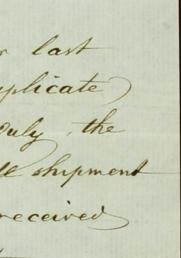 last
duplicate
July, the
shipment
received